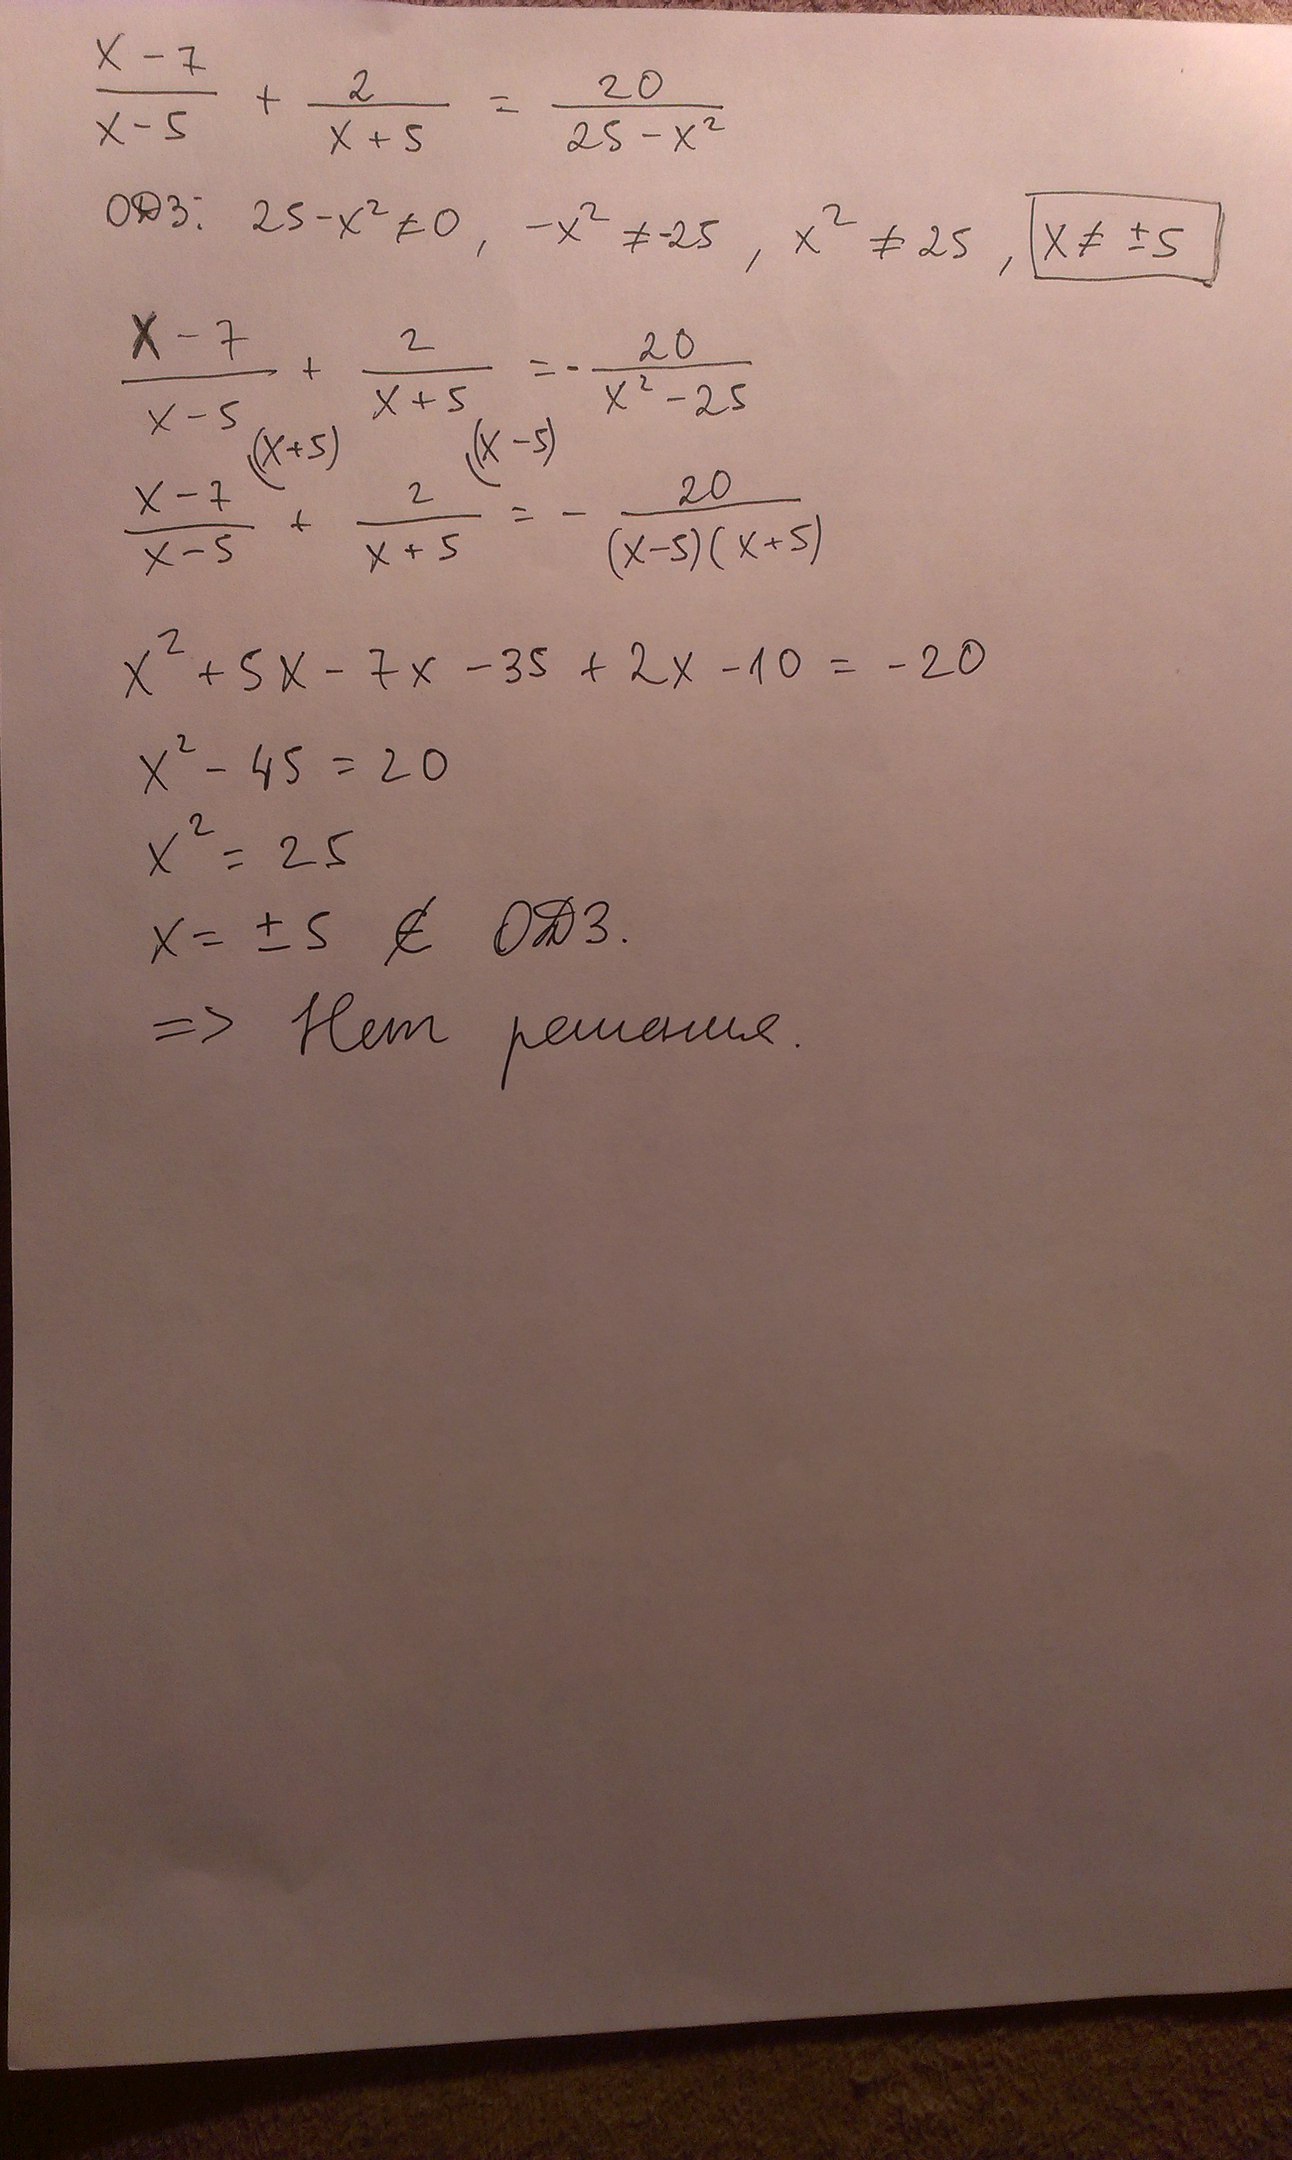 x - 7 / x - 5 + 2 / x + 5 = 20 / 25 - x²
ОДЗ: 25 - x² ≠ 0, -x² ≠ -25, x² ≠ 25, x ≠ ±5
x - 7 / x - 5 + 2 / x + 5 = - 20 / x² - 25
(x+5) (x-5)
x - 7 / x - 5 + 2 / x + 5 = - 20 / (x-5)(x+5)
x² + 5x - 7x - 35 + 2x - 10 = -20
x² - 45 = 20
x² = 25
x = ±5 ∉ ОДЗ.
=> Нет решения.